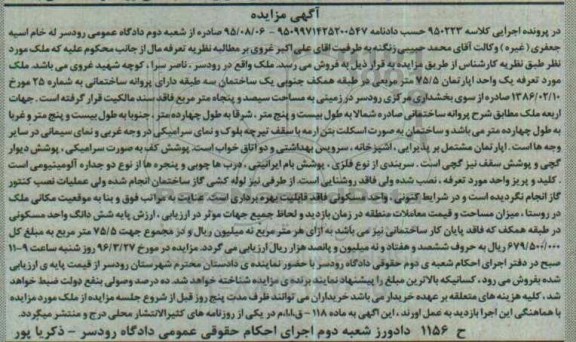 آگهی مزایده
در پرونده اجرایی کلاسه ۹۵۰۲۲۳ حسب دادنامه ۹۵۰۹۹۷۱۴۲۵۲۰۰۵۴۷ - ۹۵/۰۸/۰۶ صادره از شعبه دوم دادگاه عمومی رودسر له خام اسیه
جعفری (غیره) وکالت آقای محمد حبیبی زنگنه به طرفیت اقای علی اکبر غروی بر مطالبه نظریه تعرفه مال از جانب محکوم علیه که ملک مورد
نظر طبق نظریه کارشناس از طریق مزایده به قرار ذیل به فروش می رسد. ملک واقع در رودسر، ناصر سرا، کوچه شهید غروی می باشد. ملک
مورد تعرفه یک واحد اپارتمان ۷۵/۵ متر مربعی در طبقه همکف جنوبی یک ساختمان سه طبقه دارای پروانه ساختمانی به شماره ۲۵ مورخ
۱۳۸۶/۰۲/۱۰ صادره از سوی بخشداری مرکزی رودسر در زمینی به مساحت سیصد و پنجاه متر مربع فاقد سند مالکیت قرار گرفته است. جهات
اربعه ملک مطابق شرح پروانه ساختمانی صادره شمالا به طول بیست و پنج متر، شرقا به طول چهارده متر، جنوبا به طول بیست و پنج متر و غربا
به طول چهارده متر می باشد و ساختمان به صورت اسکلت بتن ارمه با سقف تیرچه بلوک و نمای سرامیکی در وجه غربی و نمای سیمانی در سایر
وجه ها است. اپارتمان مشتمل بر پذیرایی، اشپزخانه، سرویس بهداشتی و دو اتاق خواب است. پوشش کف به صورت سرامیکی، پوشش دیوار
گچی و پوشش سقف نیز گچی است. سربندی از نوع فلزی، پوشش بام ایرانیتی، درب ها چوبی و پنجره ها از نوع دو جداره آلومینیومی است
. کلید و پریز واحد مورد تعرفه، نصب شده ولی فاقد روشنایی است. از طرفی نیز لوله کشی گاز ساختمان انجام شده ولی عملیات نصب کنتور
گاز انجام نگردیده است و در شرایط کنونی، واحد مسکونی فاقد قابلیت بهره برداری است. عنایت به مراتب فوق و بنا به موقعیت مکانی ملک
در روستا، میزان مساحت و قیمت معاملات منطقه در زمان بازدید و لحاظ جمیع جهات موثر در ارزیابی، ارزش پایه شش دانگ واحد مسکونی
در طبقه همکف که فاقد پایان کار ساختمانی نیز می باشد به ازای هر متر مربع نه میلیون ریال و در مجموع جهت ۷۵/۵ متر مربع به مبلغ کل
۶۷۹/۵۰۰/۰۰۰ ریال به حروف ششصد و هفتاد و نه میلیون و پانصد هزار ریال ارزیابی می گردد. مزایده در مورخ ۹۶/۳/۲۷ روز شنبه ساعت ۹-۱۱
صبح در دفتر اجرای احکام شعبه ی دوم حقوقی دادگاه رودسر با حضور نماینده ی دادستان محترم شهرستان رودسر از قیمت پایه ی ارزیابی
شده بفروش می رود، کسانیکه بالاترین مبلغ را پیشنهاد نمایند برنده ی مزایده شناخته خواهد شد. ده درصد وصولی بنفع دولت ضبط خواهد
شد، کلیه هزینه های متعلقه بر عهده خریدار می باشد خریداران می توانند ظرف مدت پنج روز قبل از شروع جلسه مزایده از ملک مورد مزایده
با هماهنگی این اجرا بازدید به عمل اورند، این اگهی به ماده ۱۱۸ - ق.ا.ا.م در یکی از روزنامه های کثیرالانتشار محلی درج و منتشر میگردد.
ح ۱۱۵۶ دادورز شعبه دوم اجرای احکام حقوقی عمومی دادگاه رودسر - ذکریا پور